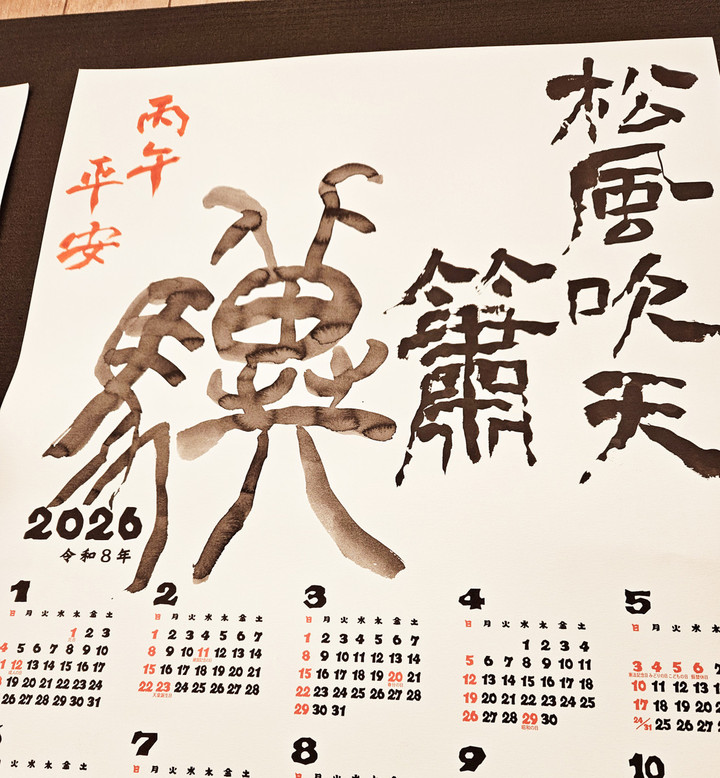 松風吹天
簫
驥
丙午
平安
2026
令和8年
1
日 月 火 水 木 金 土
1 2 3
4 5 6 7 8 9 10
12 13 14 15 16 17
成人の日
19 20 21 22 23 24
26 27 28 29 30 31
2
日 月 火 水 木 金 土
1 2 3 4 5 6 7
8 9 10 11 12 13 14
建国記念の日
15 16 17 18 19 20 21
22 23 24 25 26 27 28
天皇誕生日
3
日 月 火 水 木 金 土
1 2 3 4 5 6 7
8 9 10 11 12 13 14
15 16 17 18 19 20 21
春分の日
22 23 24 25 26 27 28
29 30 31
4
日 月 火 水 木 金 土
1 2 3 4
5 6 7 8 9 10 11
12 13 14 15 16 17 18
19 20 21 22 23 24 25
26 27 28 29 30
昭和の日
5
日 月 火 水 木 金
3 4 5 6 7
憲法記念日 みどりの日 こどもの日 振替休日
10 11 12 13 14
17 18 19 20 21
24/31 25 26 27
7
日 月 火 水 木 金 土
8
日 月 火 水 木 金 土
9
10